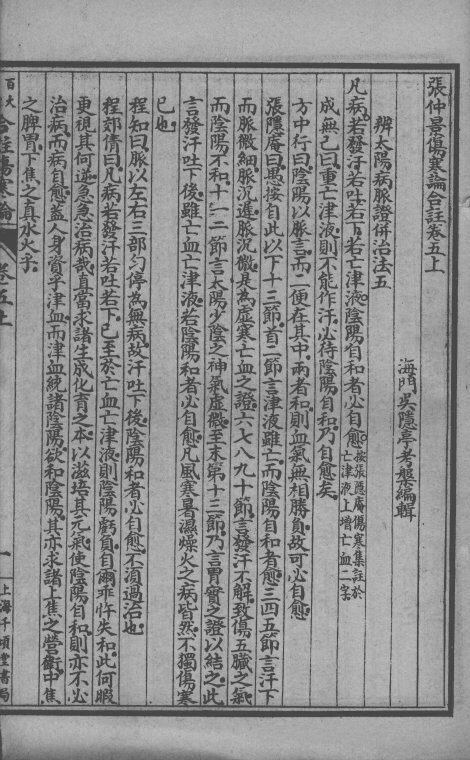 張仲景傷寒論合註卷五上
海門吳隱亭考槃編輯
辨太陽病脈證併治法五
凡病若發汗若吐若下若亡津液陰陽自和者必自愈按張隱庵傷寒集註於亡津液上增亡血二字
成無己曰重亡津液則不能作汗必待陰陽自和乃自愈矣
方中行曰陰陽以脈言而二便在其中兩者和則血氣無相勝負故可必自愈
張隱庵曰愚按自此以下十三節首二節言津液雖亡而陰陽自和者愈三四五節言汗下
而脈微細脈沉遲脈沉微是為虛寒亡血之證六七八九十節言發汗不解致傷五臟之氣
而陰陽不和十一二節言太陽少陰之神氣虛微至末第十三節乃言胃實之證以結之此
言發汗吐下後雖亡血亡津液若陰陽和者必自愈凡風寒暑濕燥火之病皆然不獨傷寒
已也
程知曰脈以左右三部勻停為無病故汗吐下後陰陽和者必自愈不須過治也
程郊倩曰凡病若發汗若吐若下已至於亡血亡津液則陰陽虧負自爾乖忤失和此何暇
更視其何逆急急治病哉直當求諸生成化育之本以滋培其元氣使陰陽自和則亦不必
治病而病自愈蓋人身資乎津血而津血統諸陰陽欲和陰陽其亦求諸上焦之營衛中焦
之脾胃下焦之真水火乎
百大
合註傷寒論
卷五上
一
上海千頃堂書局